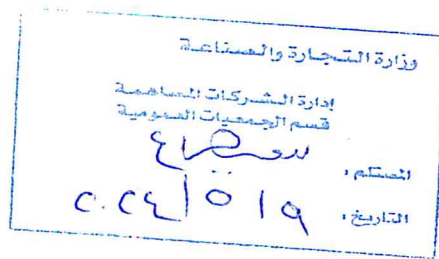 وزارة التجارة والصناعة
إدارة الشركات المساهمة
قسم الجمعيات العمومية
المستلم :
التاريخ : ٢٠٢٤/٥/٩